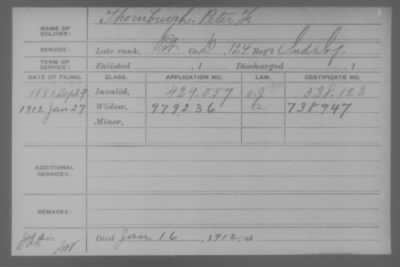 NAME OF SOLDIER: Thornburgh, Peter F.
SERVICE: Late rank, Pvt Co. D, 124 Reg't Ind. Inf.
TERM OF SERVICE: Enlisted , 1 Discharged , 1
DATE OF FILING. CLASS. APPLICATION NO. LAW. CERTIFICATE NO.
1881 Sept 9 Invalid, 429.057 528.122
1912 Jan 27 Widow, 979236 738947
Minor,
ADDITIONAL SERVICES:
REMARKS:
Died Jan 16, 1912, at